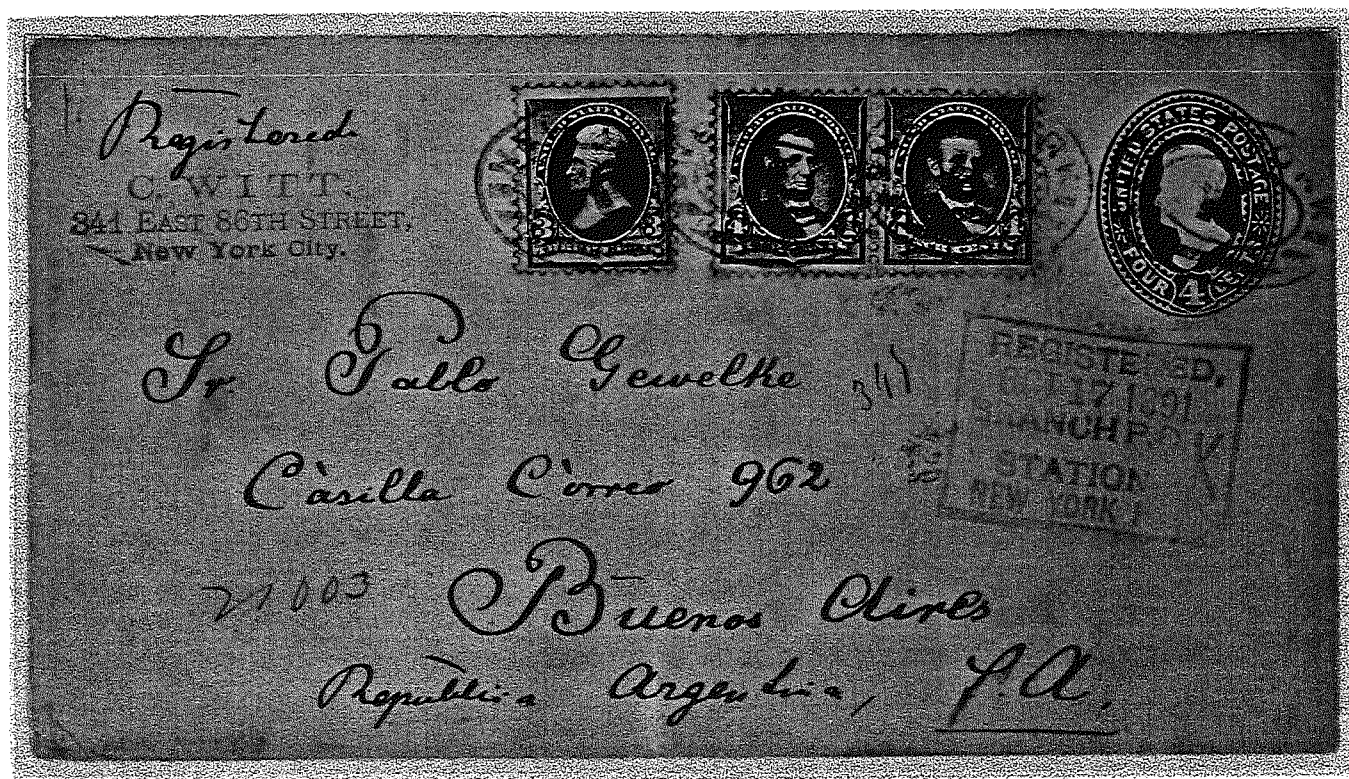 Registered
C. WITT.
341 EAST 86TH STREET,
New York City.
3 3
4 4
UNITED STATES POSTAGE
FOUR 4 CENTS
Sr. Pablo Gewelke
341
REGISTERED,
17 1891
BRANCH P.O.
STATION
NEW YORK
Casilla Correo 962
21003
Buenos Aires
República Argentina, S.A.